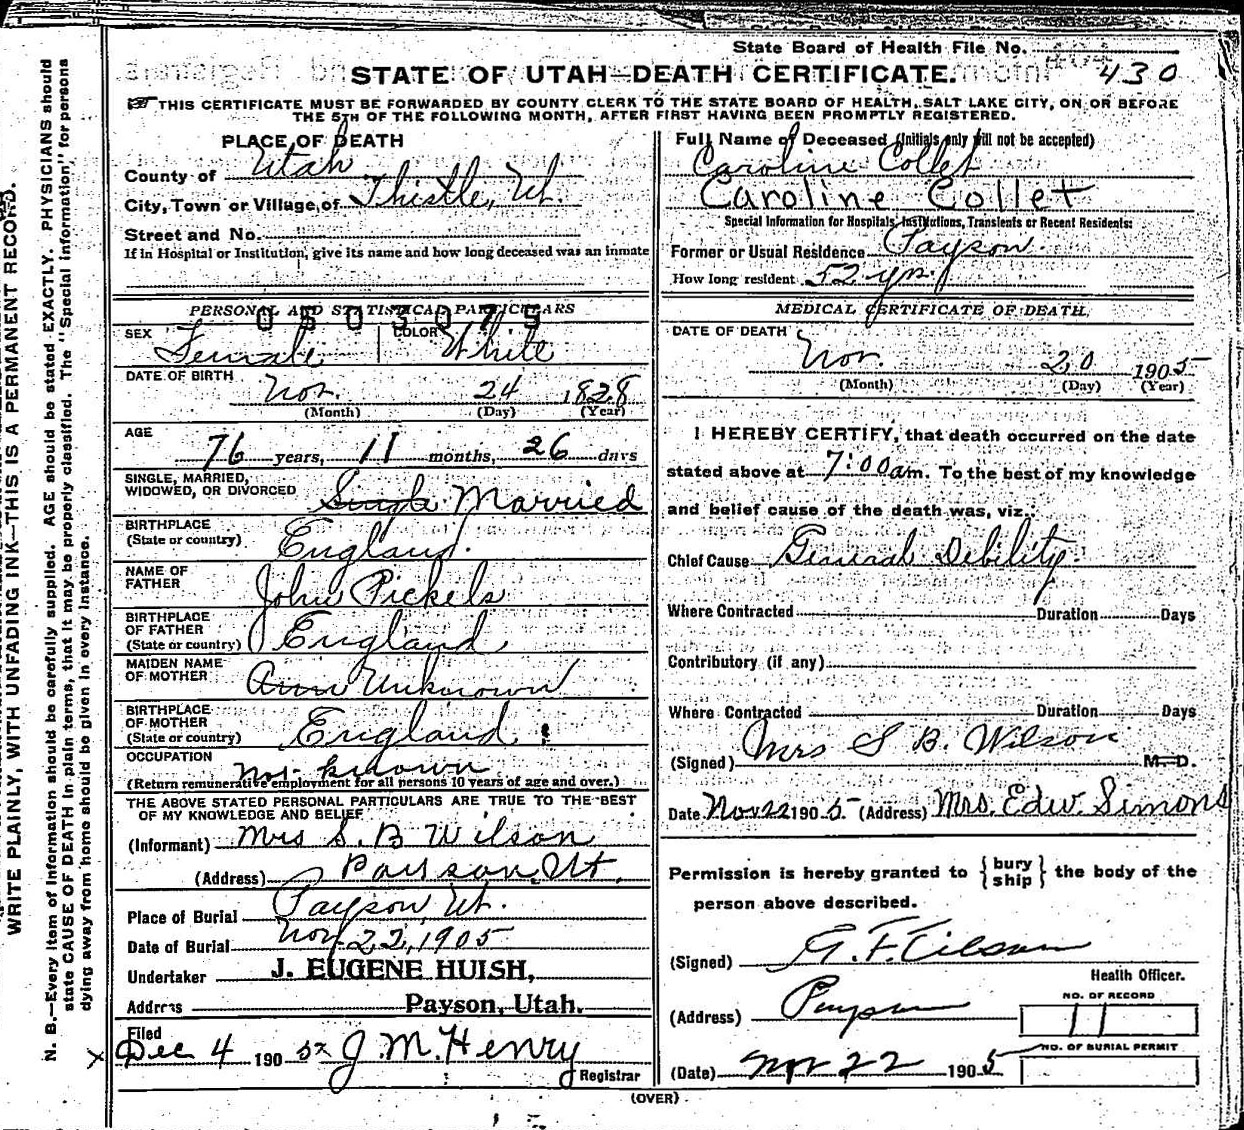 State Board of Health File No.
430
STATE OF UTAH—DEATH CERTIFICATE.
THIS CERTIFICATE MUST BE FORWARDED BY COUNTY CLERK TO THE STATE BOARD OF HEALTH, SALT LAKE CITY, ON OR BEFORE
THE 5TH OF THE FOLLOWING MONTH, AFTER FIRST HAVING BEEN PROMPTLY REGISTERED.
PLACE OF DEATH
County of Utah
City, Town or Village of Thistle, Ut.
Street and No.
If in Hospital or Institution, give its name and how long deceased was an inmate
PERSONAL AND STATISTICAL PARTICULARS
0503075
SEX Female COLOR White
DATE OF BIRTH Nov. 24 1828
(Month) (Day) (Year)
AGE 76 years, 11 months, 26 days
SINGLE, MARRIED,
WIDOWED, OR DIVORCED Single Married
BIRTHPLACE
(State or country) England.
NAME OF
FATHER John Pickels
BIRTHPLACE
OF FATHER
(State or country) England
MAIDEN NAME
OF MOTHER Ann Unknown
BIRTHPLACE
OF MOTHER
(State or country) England
OCCUPATION not known
(Return remunerative employment for all persons 10 years of age and over.)
THE ABOVE STATED PERSONAL PARTICULARS ARE TRUE TO THE BEST
OF MY KNOWLEDGE AND BELIEF
(Informant) Mrs S. B Wilson
(Address) Payson, Ut.
Place of Burial Payson, Ut.
Date of Burial Nov 22, 1905
Undertaker J. EUGENE HUISH,
Address Payson, Utah.
Filed
Dec 4 1905 J. M. Henry
Registrar
Full Name of Deceased (Initials only will not be accepted)
Caroline Collet
Caroline Collet
Special Information for Hospitals, Institutions, Transients or Recent Residents:
Former or Usual Residence Payson.
How long resident 52 yrs.
MEDICAL CERTIFICATE OF DEATH.
DATE OF DEATH
Nov. 20 1905
(Month) (Day) (Year)
I HEREBY CERTIFY, that death occurred on the date
stated above at 7:00 am. To the best of my knowledge
and belief cause of the death was, viz.:
Chief Cause General Debility.
Where Contracted Duration Days
Contributory (if any)
Where Contracted Duration Days
(Signed) Mrs S B. Wilson M. D.
Date Nov 22 1905. (Address) Mrs. Edw. Simons
Permission is hereby granted to { bury
ship } the body of the
person above described.
(Signed)
Health Officer.
(Address) Payson
NO. OF RECORD
11
NO. OF BURIAL PERMIT
(Date) Nov 22 1905
(OVER)
WRITE PLAINLY, WITH UNFADING INK—THIS IS A PERMANENT RECORD.
N. B.—Every item of information should be carefully supplied. AGE should be stated EXACTLY. PHYSICIANS should
state CAUSE OF DEATH in plain terms, that it may be properly classified. The "Special Information" for persons
dying away from home should be given in every instance.